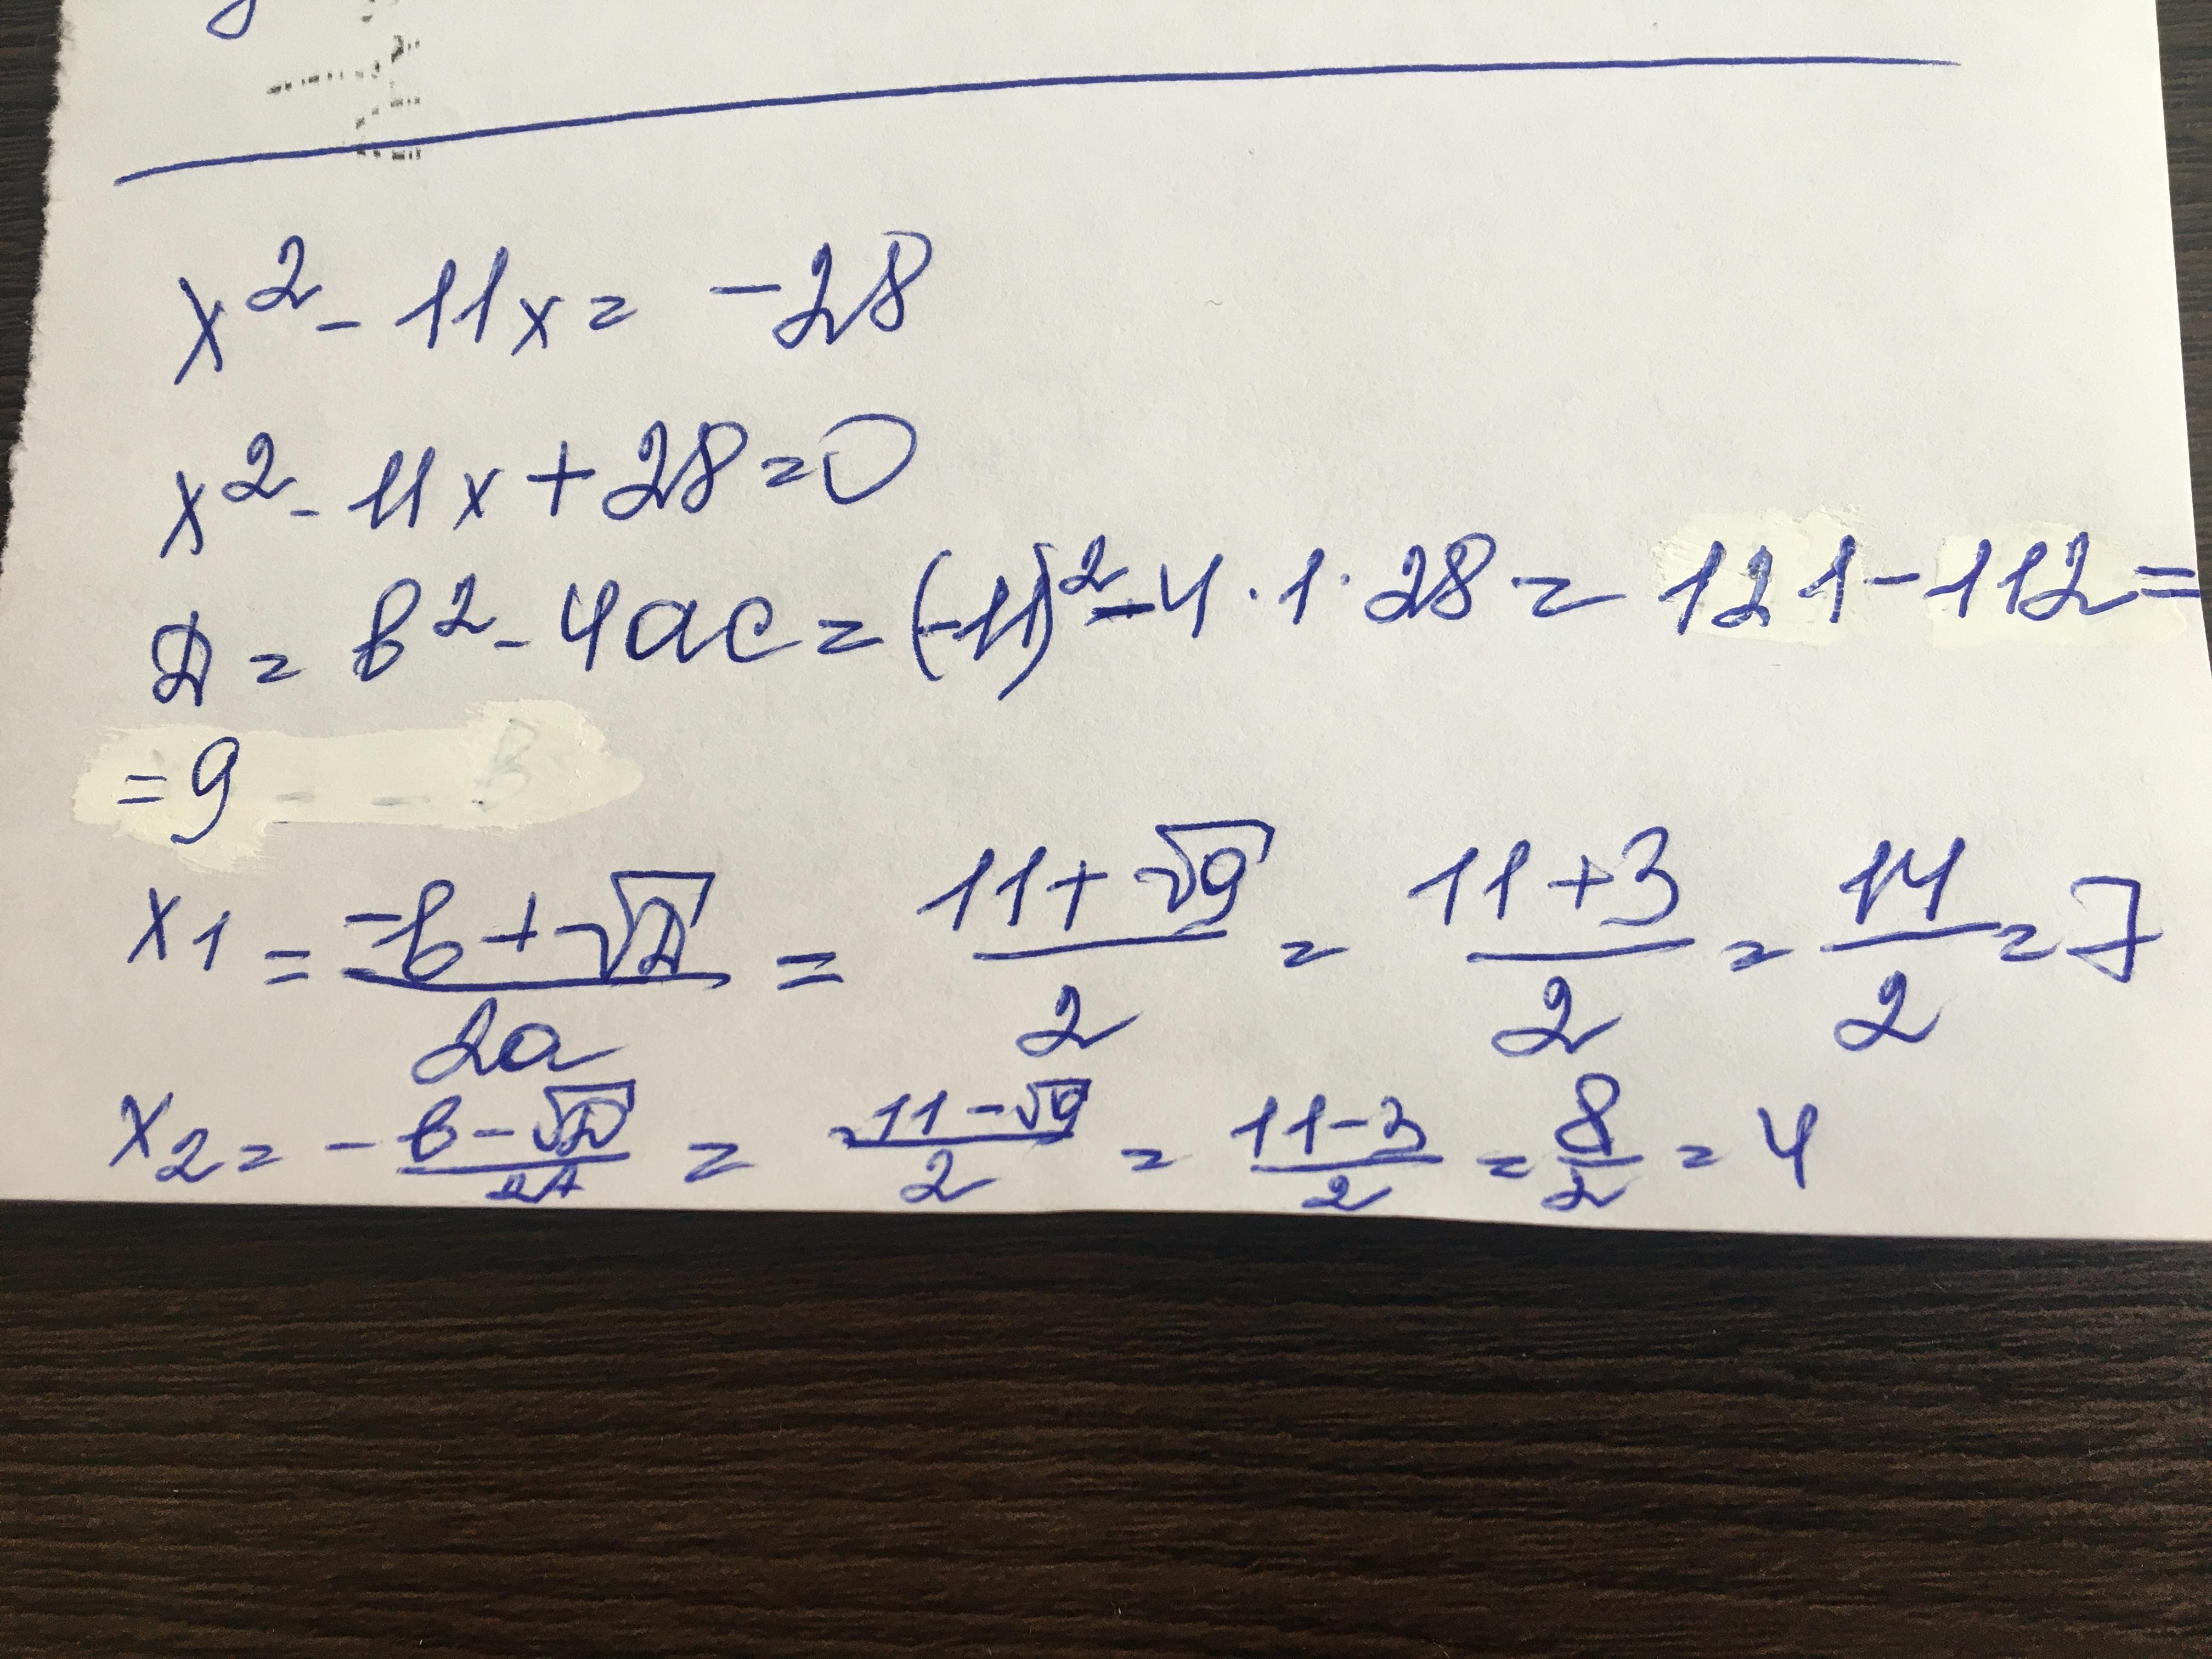 x² - 11x = -28
x² - 11x + 28 = 0
Д = b² - 4ac = (-11)² - 4 · 1 · 28 = 121 - 112 =
= 9
x₁ = (-b + √Д)/2a = (11 + √9)/2 = (11 + 3)/2 = 14/2 = 7
x₂ = (-b - √Д)/2a = (11 - √9)/2 = (11 - 3)/2 = 8/2 = 4